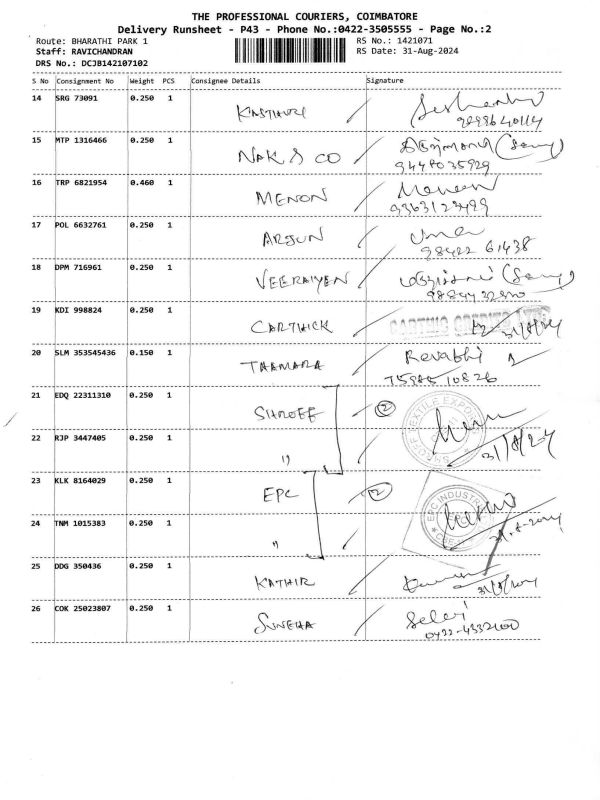 THE PROFESSIONAL COURIERS, COIMBATORE
Delivery Runsheet - P43 - Phone No.:0422-3505555 - Page No.:2
Route: BHARATHI PARK 1 RS No.: 1421071
Staff: RAVICHANDRAN RS Date: 31-Aug-2024
DRS No.: DCJB142107102
S No Consignment No Weight PCS Consignee Details Signature
14 SRG 73091 0.250 1 KASTHURI
15 MTP 1316466 0.250 1 NAK & CO
9444035929
16 TRP 6821954 0.460 1 MENON Menon
9363123499
17 POL 6632761 0.250 1 ARJUN Uma
98422 61438
18 DPM 716961 0.250 1 VEERAIYEN
19 KDI 998824 0.250 1 CARTHICK 31/8/24
20 SLM 353545436 0.150 1 THAMARA Revathi
75985 10826
21 EDQ 22311310 0.250 1 SHROFF 2
22 RJP 3447405 0.250 1 " 31/8/24
23 KLK 8164029 0.250 1 EPC 2 EPC INDUSTR
24 TNM 1015383 0.250 1 " 31-8-2024
25 DDG 350436 0.250 1 KATHIR
31/8/2024
26 COK 25023807 0.250 1 SUNEHA Selvi
0422-4332100